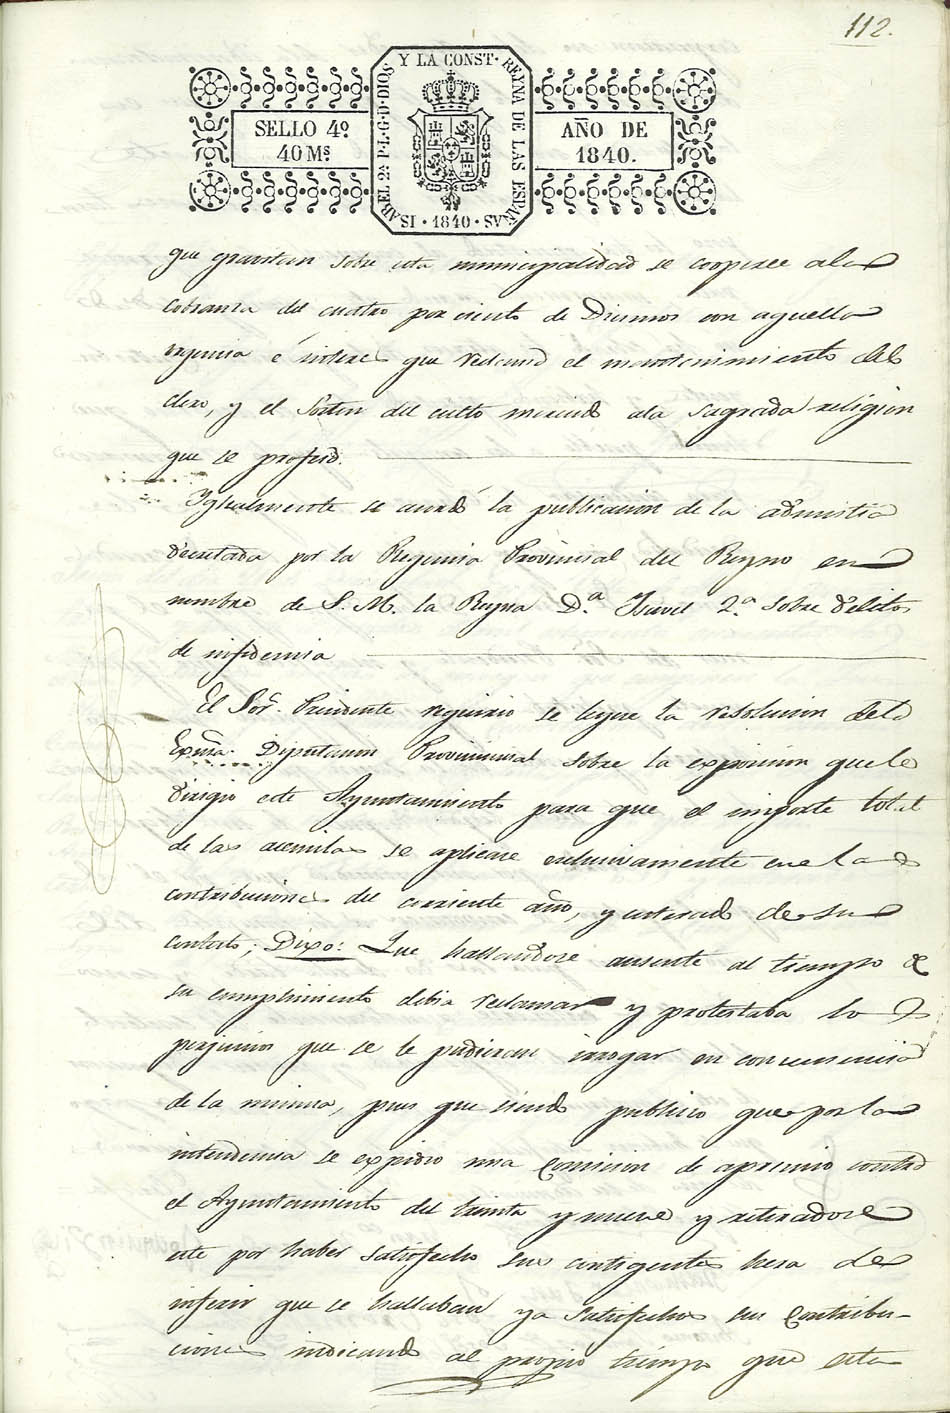 112.
Y LA CONST. REYNA DE LAS ESPAÑAS
ISABEL 2ª P.L.G.D.DIOS
SELLO 4º
40 Mˢ
AÑO DE
1840.
1840
que gravitan sobre esta municipalidad se coopere a la
cobranza del cuatro por ciento de Diezmos con aquella
urgencia é interes que reclama el mantenimiento del
clero, y el sosten del culto a la sagrada religion
que se profesa.
Ygualmente se acordó la publicacion de la admistia
decretada por la Regencia Provincial del Reyno en
nombre de S. M. la Reyna D.ª Isavel 2.ª sobre delitos
de infidencia
El Sor. Presidente requirio se leyese la resolucion de la
Exma. Diputacion Provincial sobre la exposicion que le
dirigio este Ayuntamiento para que el importe total
de las acemilas se aplicase esclusivamente en la
contribuciones del corriente año, y enterado de su
contesto, Dixo: Que hallandose ausente al tiempo de
su cumplimiento debia reclamar y protestaba lo
perjuicios que se le pudieran irrogar en consecuencia
de la misma, pues que siendo publico que por la
intendencia se expidio una Comision de apremio contra
el Ayuntamiento del treinta y nueve y retiradose
este por haber satisfecho sus contigentes hera de
inferir que se hallaban ya satisfechas sus Contribu-
ciones indicando al propio tiempo que esta